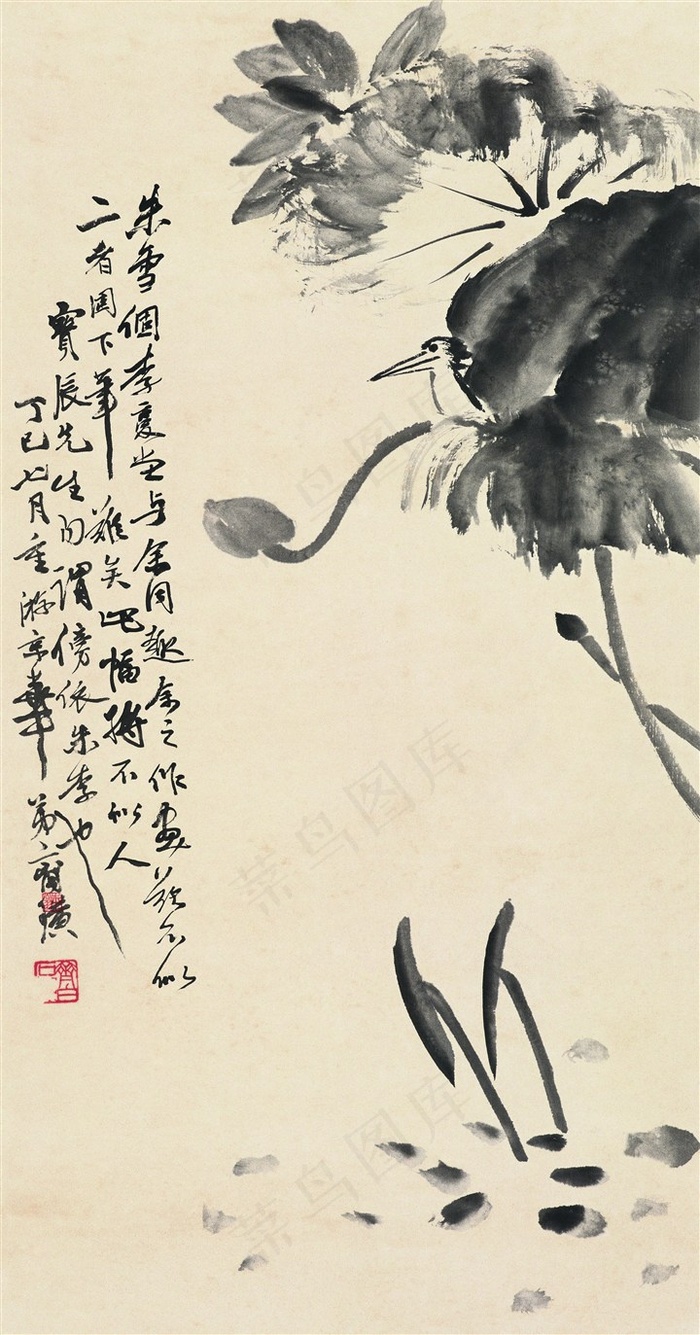 朱雪個李复堂与余同趣余之作画茲不似
二者固下筆難矣此幅搏不似人
寶辰先生問謂傍依朱李也
丁巳七月重游京華弟璜
齊白石
菜鸟图库
菜鸟图库
菜鸟图库